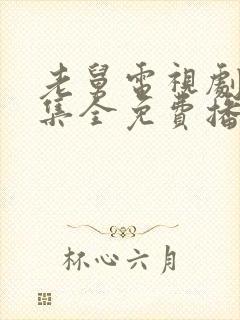 老舅電視劇
集全免費播
杯心六月